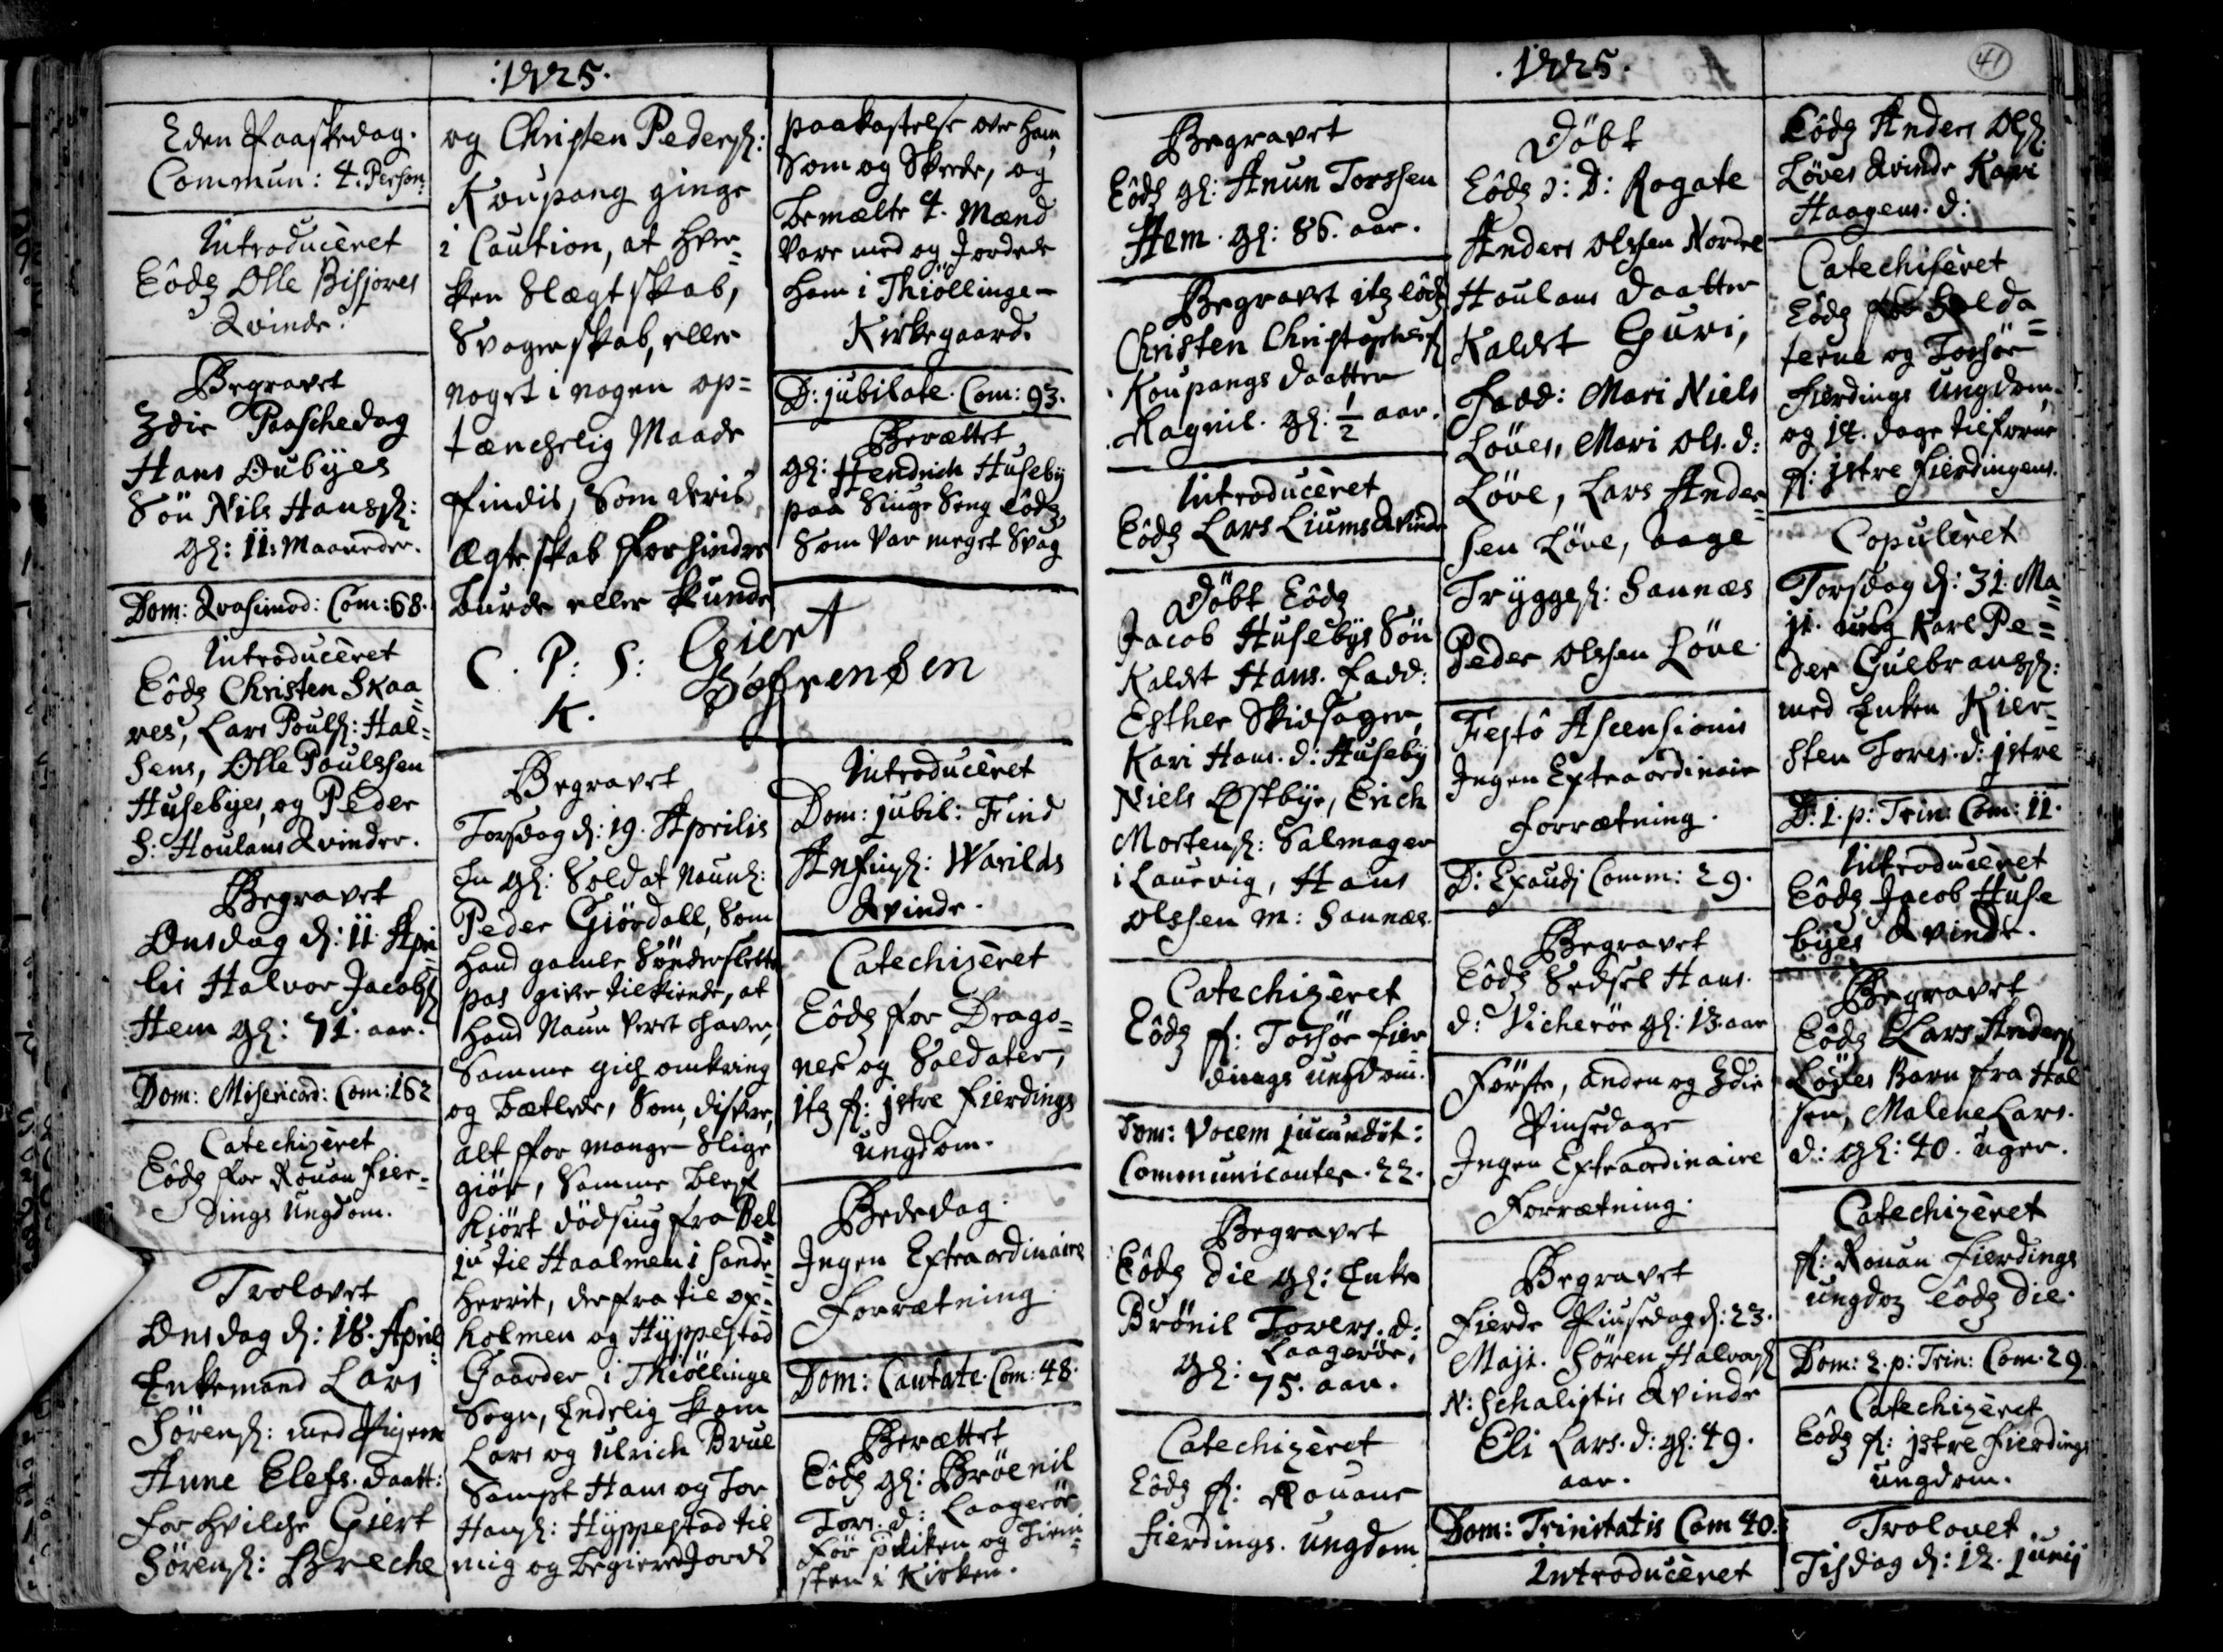 :1725.
2den Paaskedag.
Commun: 4. Person:
Introducèret
Eôdz Olle Bisjores
Qvinde.
Begravet
3die Paaschedag
Hans Oubÿes
Sön Nils Hansβ:
gl: 11: Maaneder.
Dom: Qvasimod: Com: 68.
Introducèret
Eôdz Christen Skaa=
res, Lars Poulβ: Hal=
sens, Olle Poulssen
Husebÿes, og Peder
S: Houlans Qvinder.
Begravet
Onsdag d: 11. Apri=
lis Halvor Jacobβ
Hem gl: 71. aar.
Dom: Misericord: Com: 162
Catechizèret
Eôdz for Rouan Fier=
dings Ungdom.
Trolovet
Onsdag d: 18. April
Enkemand Lars
Sörenβ: med Pigen
Anne Elefs. daatt:
for hvilche Giert
Sörenβ: Breche
og Christen Pederβ:
Koupang ginge
i Caution, at hver=
ken Slægtskab,
Svogerskab, eller
noget i nogen op=
tænchelig Maade
findis, som deris
Ægteskab forhindre
burde eller kunde
C. P: S: Giert
K. Söfrensen
Begravet
Torsdag d: 19. Aprilis
En gl: Soldat naunl:
Peder Giördall, som
hand gamle Sönderslette
pas giver tilkiende, at
hand naun veret haver,
Samme gich omkring
og betlede, som, disver,
alt for mange slige
giör, Samme blef
kiört dödsiug fra Bel
ju til Haalmen i Sande=
herrit, der fra til op=
holmen og Hÿppestad
Gaarder i Thiöllinge
Sogn, Endelig kom
Lars og Ulrich Brue
Sampt Hans og Tor
Hansβ: Hÿppestad til
mig og begierede Jords
paakastelse over ham,
Som og Skeede, og
bemælte 4. Mænd
vare med og Jordede
ham i Thiöllinge
Kirkegaard.
D: jubilate. Com: 93.
Berættet
gl: Hendrich Husebÿ
paa Siuge Seng eôdz,
Som var meget Svag
Introducèret
Dom: jubil: Find
Anfinβ: Warilds
Qvinde.
Catechizèret
Eôdz for Drago=
ner og Soldater,
itz f: jstre Fierdings
ungdom.
Bededag.
Ingen Extraordinaire
Forrætning.
Dom: Cantate. Com: 48.
Berættet
Eôdz gl: Bröenil
Tors. d: Laageröe
för prædiken og Tieni=
sten i Kirken.
.1725.
41
Begravet
Eôdz gl: Anun Torssen
Hem. gl: 86. aar.
Begravet itz eôdz
Christen Christophersβ
Koupangs daatter
Ragnil. gl: 1/2 aar.
Introducèret
Eôdz Lars Liums Qvinde
Döbt Eôdz
Jacob Husebÿs Sön
Kaldet Hans. Fadd:
Esther Skidsager,
Kari Hans. d: Husebÿ
Niels Østbÿe, Erich
Mortenβ: Salmager
i Laurvig, Hans
Olssen m: Saunæs.
Catechizèret
Eôdz f: Torsör Fier
dings ungdom.
Dom: Vocem jucundit:
Communicanter. 22.
Begravet
Eôdz die gl: Enke
Brönil Tovers. d:
Laageröe,
gl: 75. aar.
Catechizèret
Eôdz f: Rouans
fierdings. ungdom
Döbt
Eôdz ɔ: D: Rogate
Anders Olssen Nordre
Houlans daatter
Kaldet Guri,
Fadd: Mari Niels
Löves, Mari Ols. d:
Löve, Lars Ander=
sen Löve, Aage
Trÿggeβ: Saunæs
Peder Olssen Löve.
Festô Ascensionis
Ingen Extraordinair
forrætning.
D: Exaudj Comm: 29.
Begravet
Eôdz Sedsel Hans.
d: Vicheröe gl: 13. aar
Förste, anden og 3die
Pinsedage
Ingen Extraordinaire
Forrætning.
Begravet
Fierde Pinsedag d: 23.
Maji. Sören Halvorβ
N: Schalistis Qvinde
Eli Lars. d: gl: 49.
aar.
Dom: Trinitatis Com 40.
Introducèret
Eôdz Anders Olβ.
Löves Qvinde Kari
Haagens. d:
Catechisèret
Eôdz for Solda=
terne og Torsör
Fierdings Ungdom,
og 14. dage tilforne
f: jstre Fierdingens.
Copulèret
Torsdag d: 31. Ma=
ji. ung Karl Pe=
der Gulbransβ:
med Enken Kier=
sten Tores. d: jstre
D: 1. p: Trin: Com: 11.
Introducèret
Eôdz Jacob Huse
bÿes Qvinde.
Begravet
Eôdz Lars Andersβ
Löves Barn fra Hal
sen, Malene Lars.
d: gl: 40. uger.
Catechizèret
f: Rouan Fierdings
ungdoz Eôdz die.
Dom: 2. p: Trin: Com. 29.
Catechizèret
Eôdz f: jstre Fierdings
ungdom.
Trolovet
Tisdag d: 12. Junij